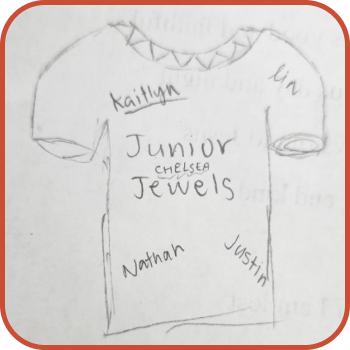 Kaitlyn
Lin
Junior
CHELSEA
Jewels
Nathan
Justin